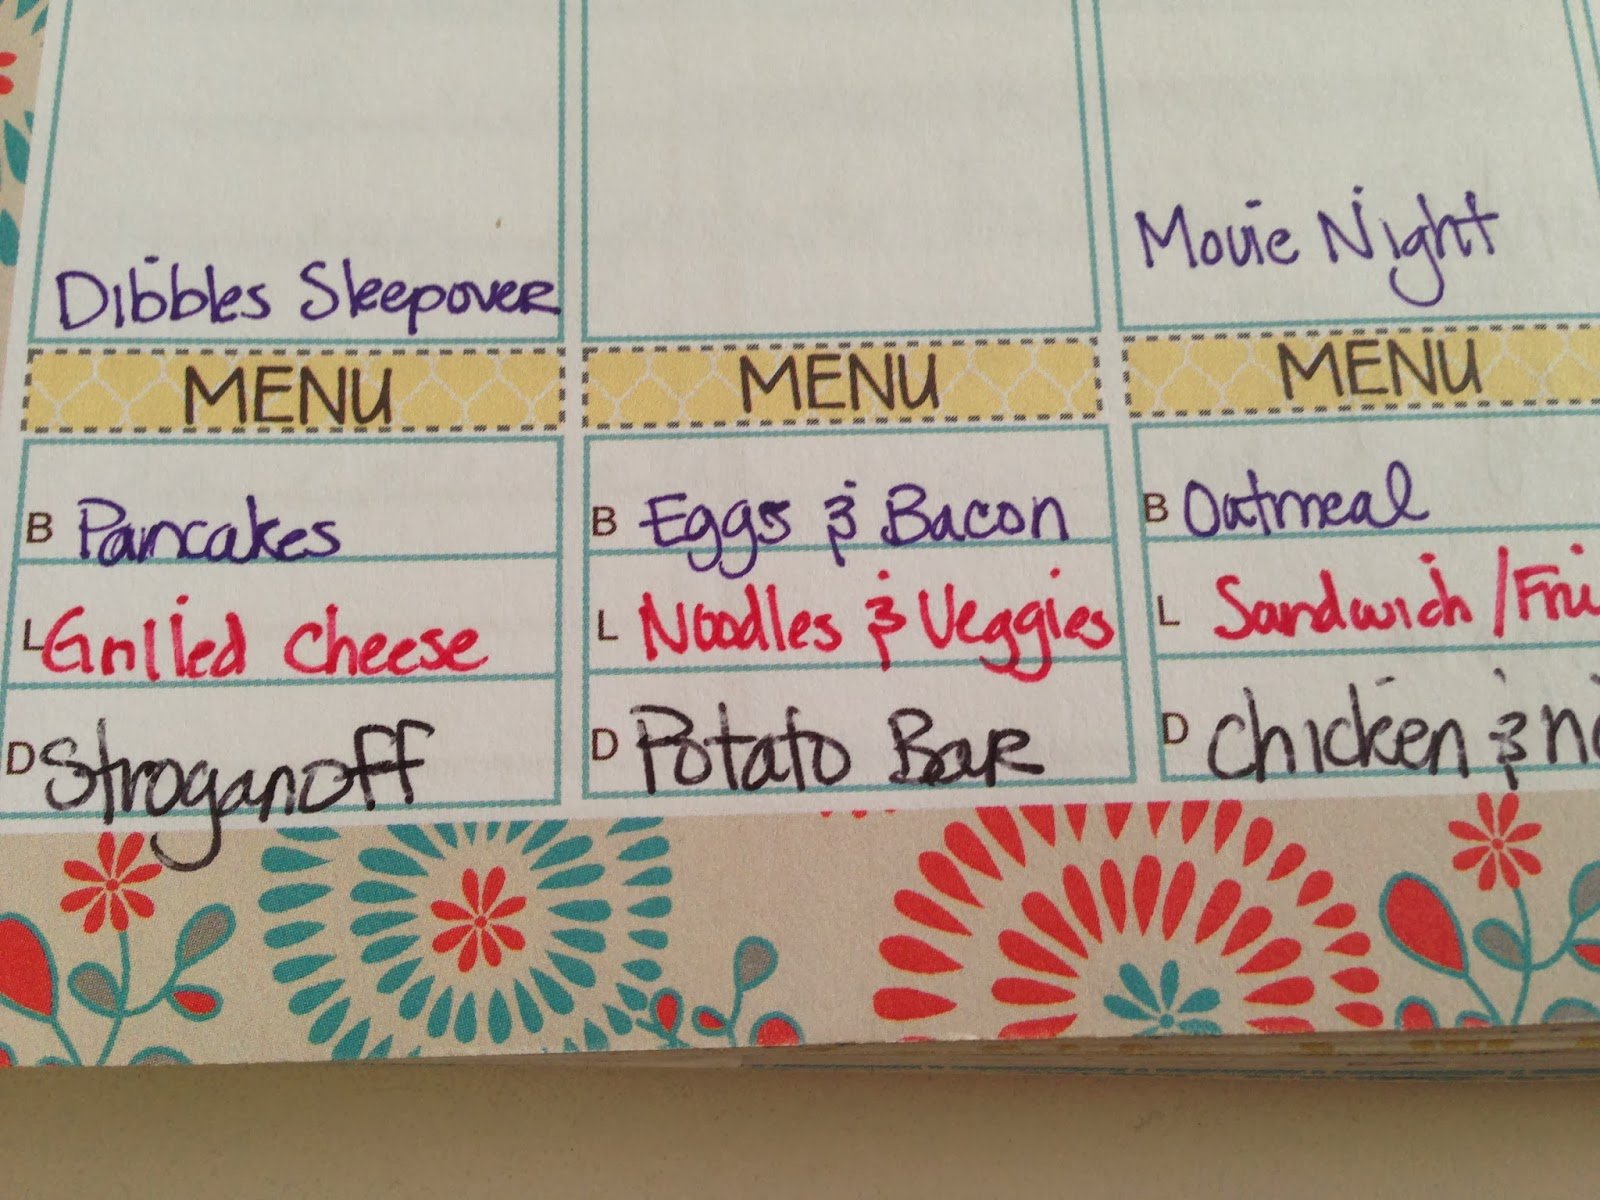 Dibbles Sleepover
MENU
B Pancakes
L Grilled Cheese
D Stroganoff
MENU
B Eggs & Bacon
L Noodles & Veggies
D Potato Bar
Movie Night
MENU
B Oatmeal
L Sandwich /
D Chicken &